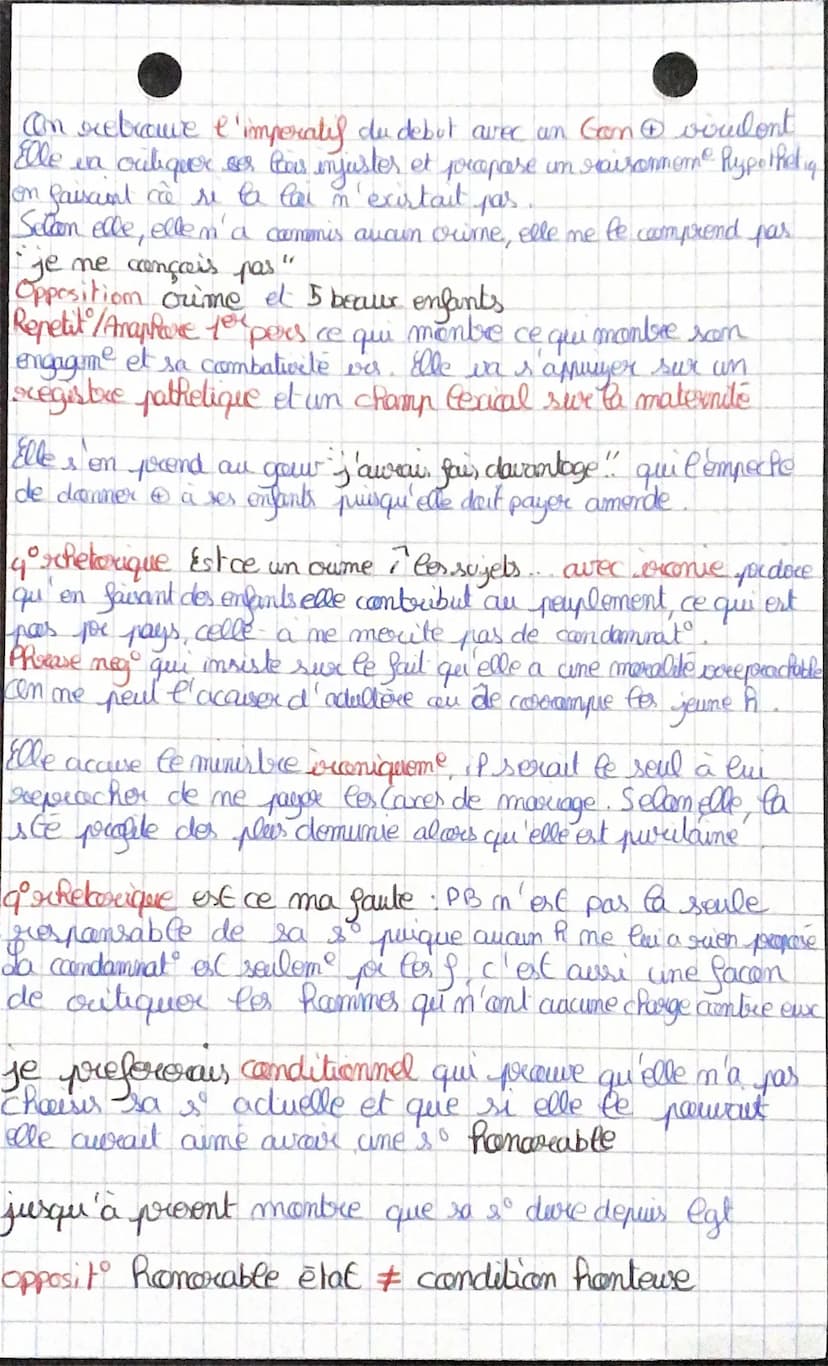 On retrouve l'imperatif du debut avec un ton ⊕ virulent
Elle va critiquer ses lois injustes et propose un raisonnemᵉ hypothétiq
en faisant cō si la loi n'existait pas.
Selon elle, elle n'a commis aucun crime, elle ne le comprend pas
"je ne conçois pas"
Opposition crime et 5 beaux enfants
Repetit°/Anaphore 1ère pers ce qui montre ce qui montre son
engagemᵉ et sa combativité. Elle va s'appuyer sur un
registre pathetique et un champ lexical sur la maternité
Elle s'en prend au gouv "j'aurai fais davantage" qui l'empeche
de donner ⊕ à ses enfants puisqu'elle doit payer amende.
q° rhetorique Est ce un crime les sujets.. avec ironie
qu'en faisant des enfants elle contribut au peuplement, ce qui est
pays, celle-a ne merite pas de condamnat°.
Phrase neg° qui insiste sur le fait qu'elle a une moralité irreprochable
on ne peut l'acauser d'adultère ou de corrompre les jeune h.
Elle accuse le ministre ironiquemᵉ, il serait le seul à lui
reprocher de ne payer les taxes de mariage. Selon elle, la
sté profite des plus demunie alors qu'elle est puritaine
q° rhetorique est ce ma faute : PB n'est pas la seule
responsable de sa s° puique aucun h ne lui a rien proposé
La condamnat° est seulemᵉ pr les f, c'est aussi une facon
de critiquer les hommes qui n'ont aucune charge contre eux
je prefererais conditionnel qui prouve qu'elle n'a pas
choisis sa s° actuelle et que si elle le pouvait
elle aurait aimé avoir une s° honorable
jusqu'à present montre que sa s° dure depuis lgt
opposit° honorable état ≠ condition honteuse